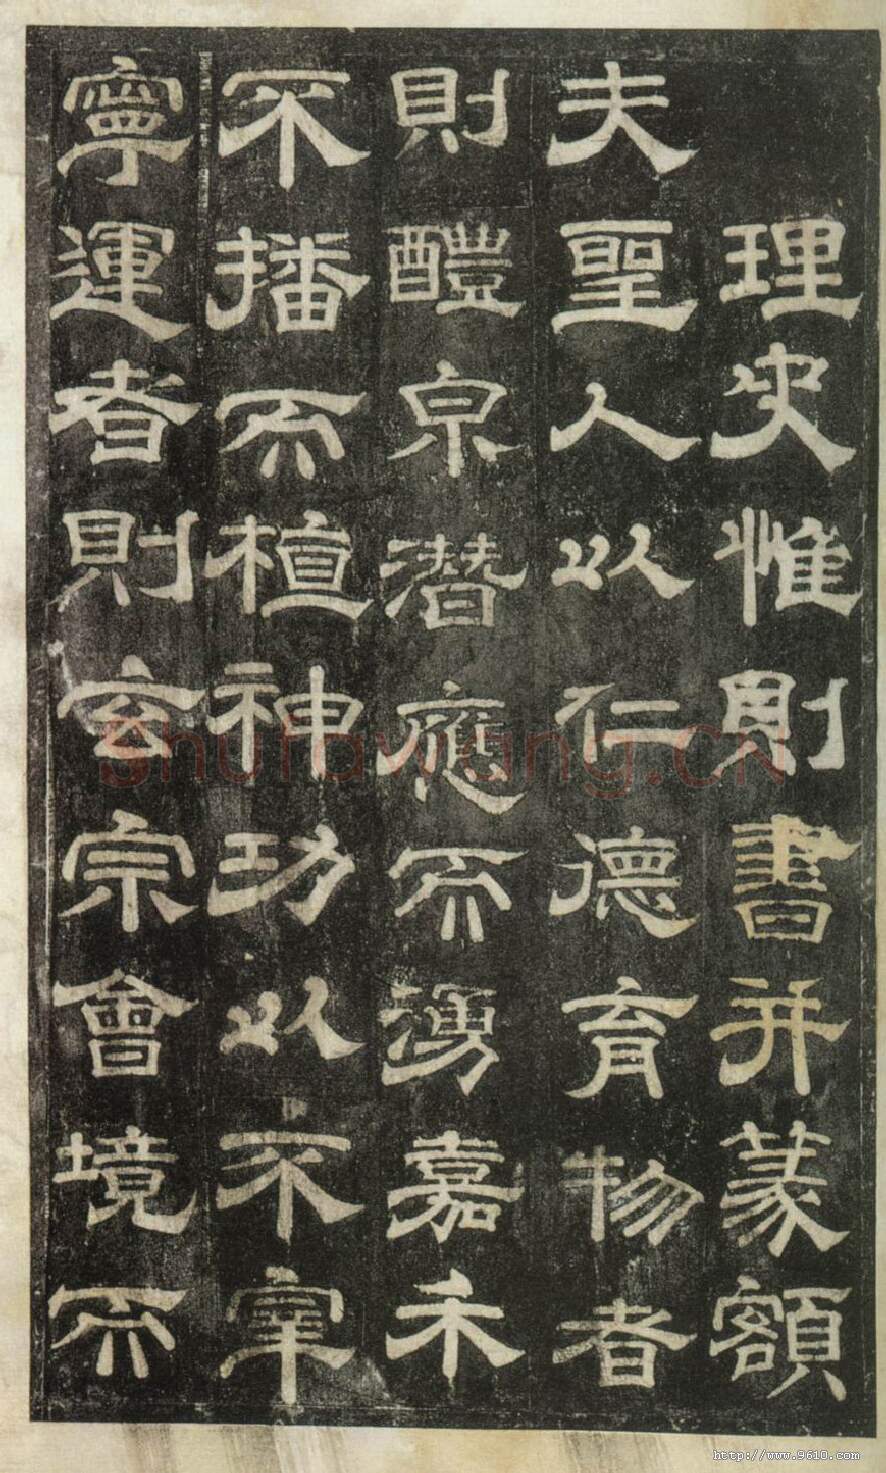 理史惟則書并篆額
夫聖人以仁德育物者
則醴泉潛應而湧嘉禾
不播而植神功以不宰
寧運者則玄宗會境而
shufawang.CN
http://www.9610.com